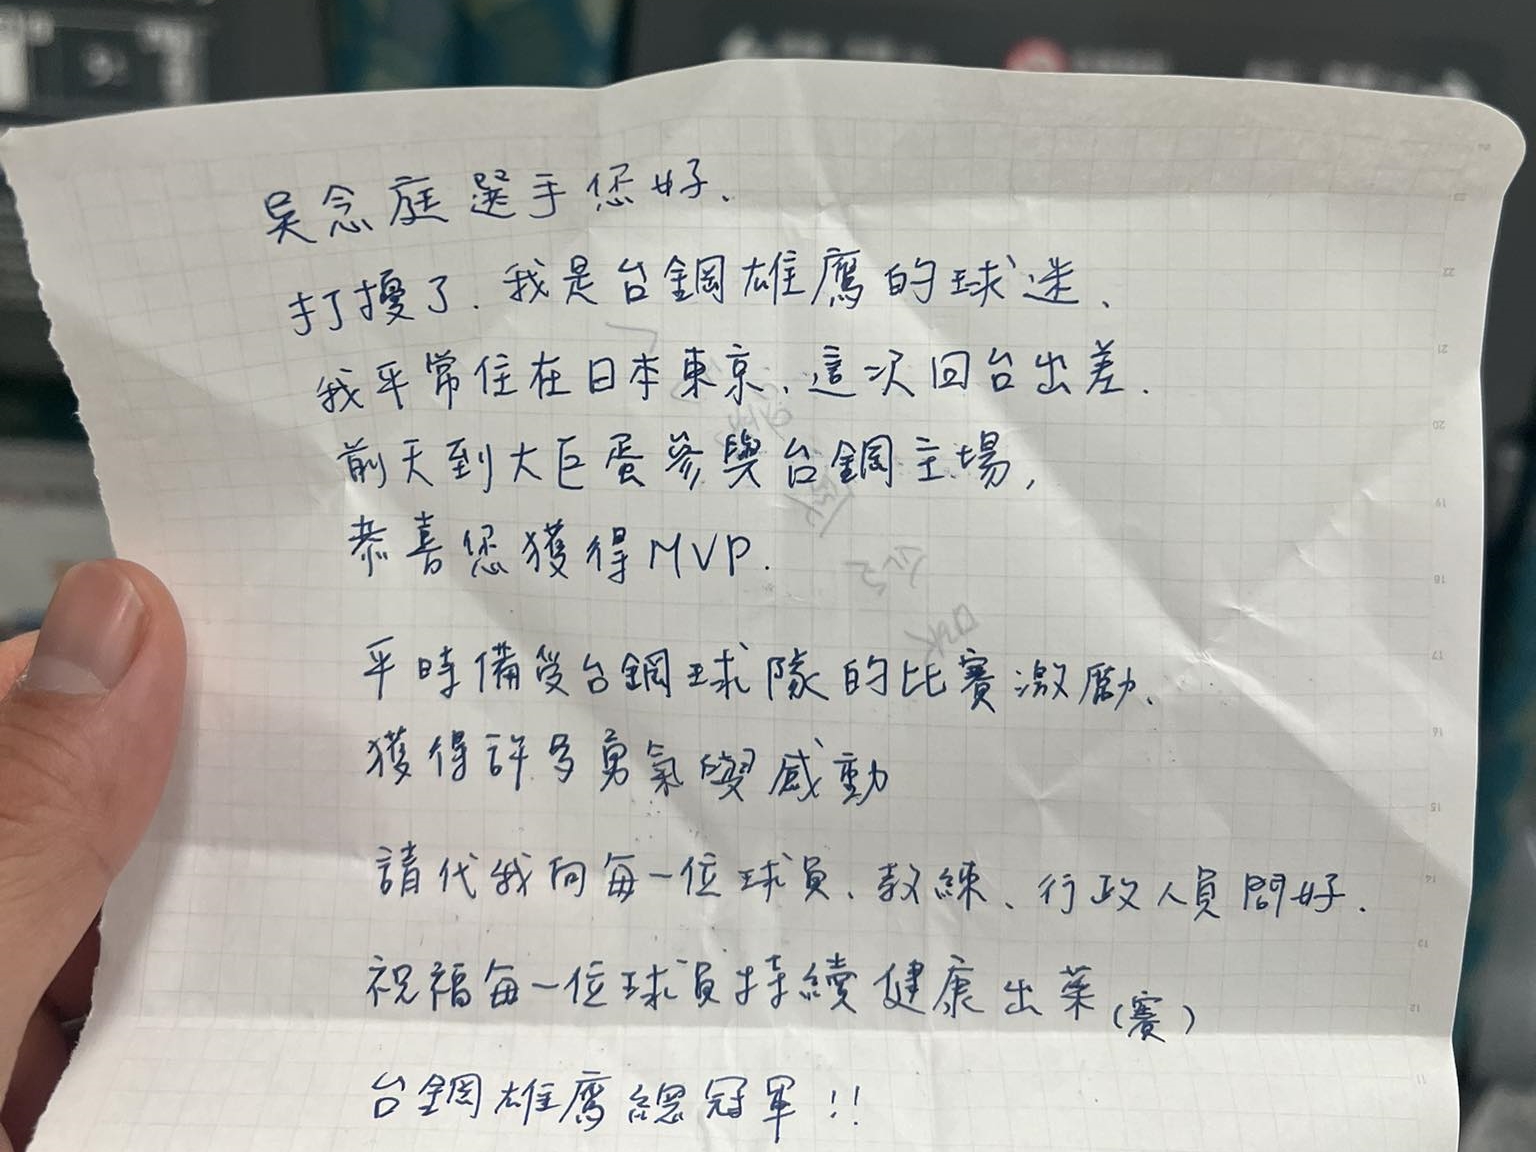 吳念庭選手您好.
打擾了.我是台鋼雄鷹的球迷、
我平常住在日本東京、這次回台出差.
前天到大巨蛋參與台鋼主場,
恭喜您獲得MVP.
平時備受台鋼球隊的比賽激勵、
獲得許多勇氣與感動
請代我向每一位球員、教練、行政人員問好.
祝福每一位球員持續健康出萊(賽)
台鋼雄鷹總冠軍!!